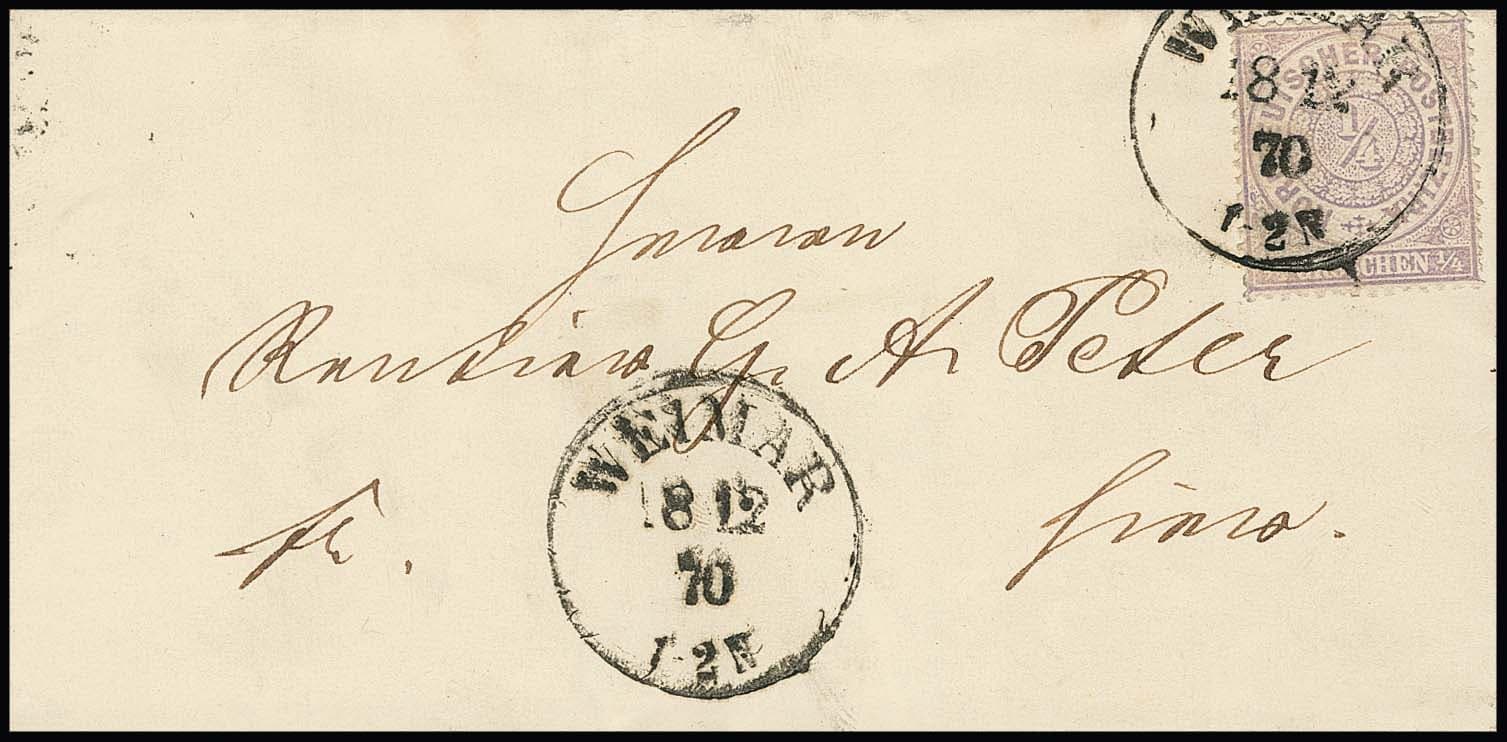 WEIMAR
18 12
70
1-2N
NORDDEUTSCHER POSTBEZIRK
1/4
GROSCHEN 1/4
Herrn
Rentier G. A. Peter
WEIMAR
18 12
70
1-2N
fr.
hier.